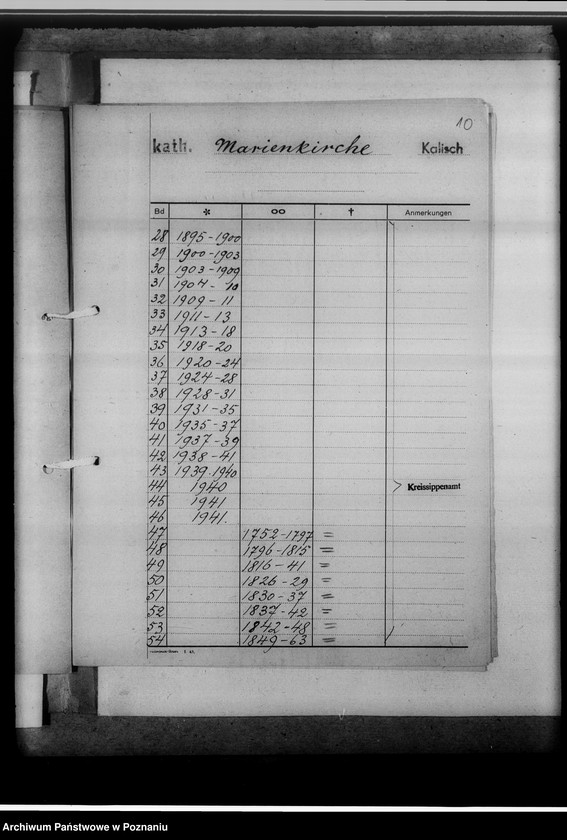 10
kath. Marienkirche Kalisch
Bd * ∞ † Anmerkungen
28 1895-1900
29 1900-1903
30 1903-1909
31 1907-10
32 1909-11
33 1911-13
34 1913-18
35 1918-20
36 1920-24
37 1924-28
38 1928-31
39 1931-35
40 1935-37
41 1937-39
42 1938-41
43 1939.1940
44 1940 > Kreissippenamt
45 1941
46 1941.
47 1752-1797 =
48 1796-1815 =
49 1816-41 =
50 1826-29 =
51 1830-37 =
52 1837-42 =
53 1842-48 =
54 1849-63 =
Archiwum Państwowe w Poznaniu